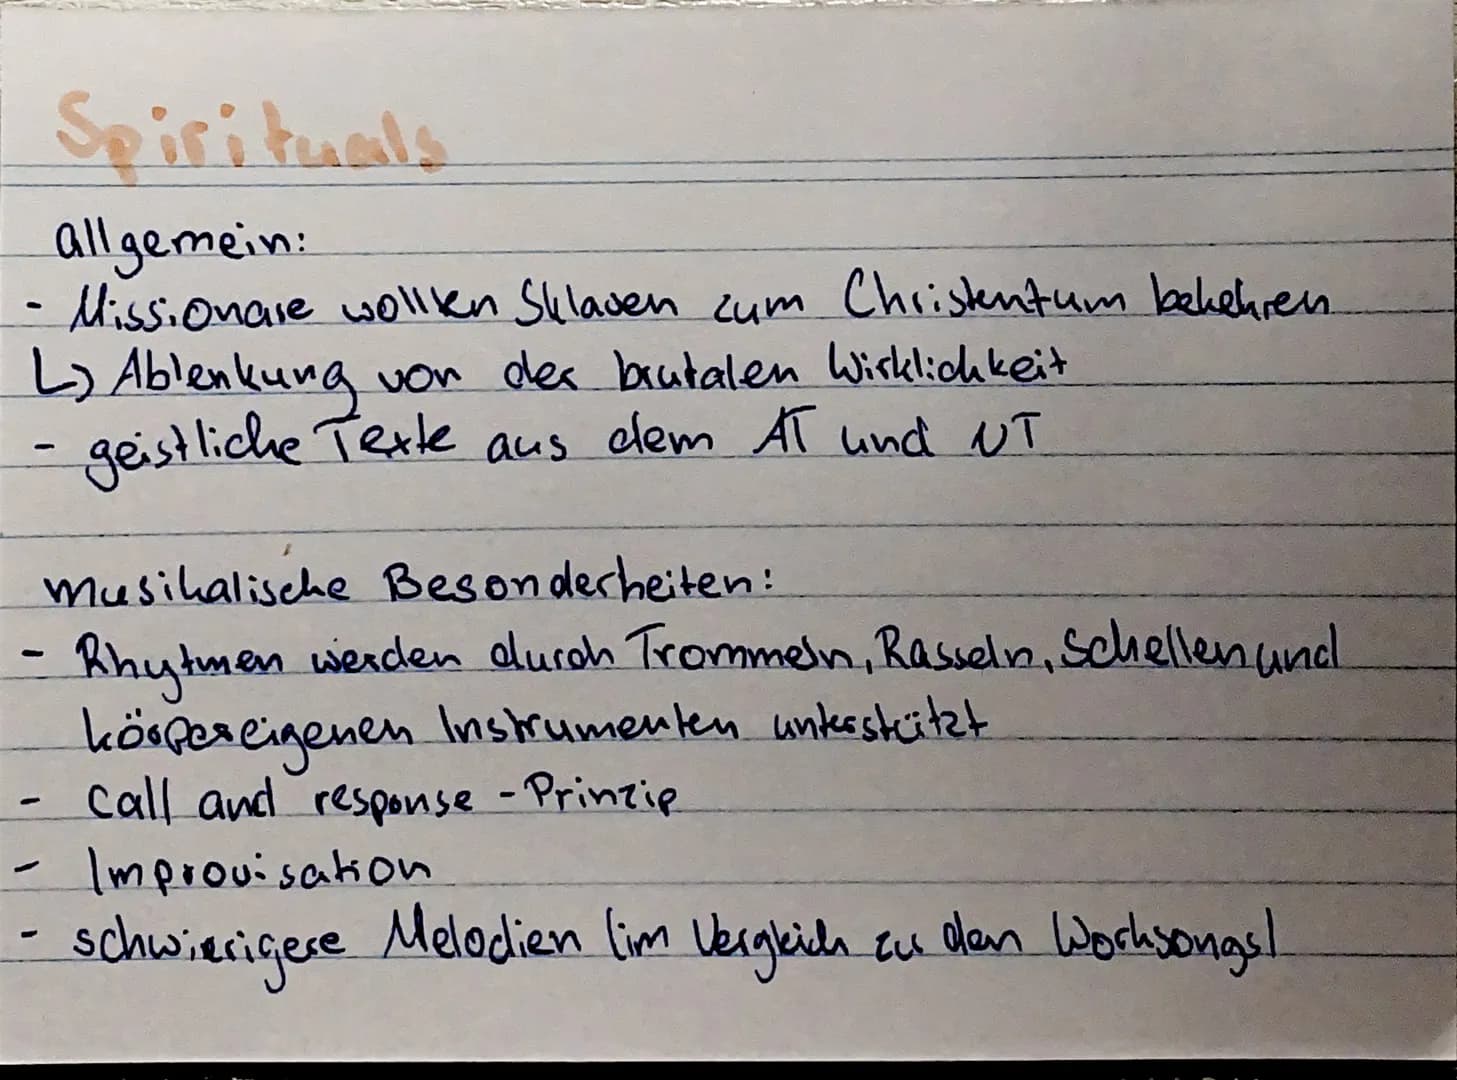 Spirituals
allgemein:
- Missionare wollten Sklaven zum Christentum bekehren
↳ Ablenkung von der brutalen Wirklichkeit
- geistliche Texte aus dem AT und NT
musikalische Besonderheiten:
- Rhytmen werden durch Trommeln, Rasseln, Schellen und
körpereigenen Instrumenten unterstützt
- Call and response - Prinzip
- Improvisation
- schwierigere Melodien (im Vergleich zu den Worksongs)